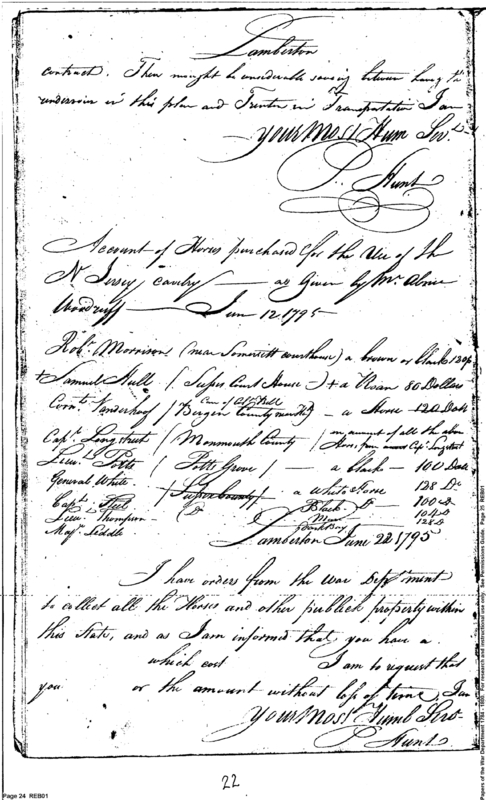 Lamberton
contract. There might be considerable saving between having the
undersoir in this place and Trenton in Transportation I am
your Most Hum Servt
P. Hunt
Account of Horses purchased for the Use of the
N Jersey Cavelry — as Given by Mr.
Woodruff — Jun 12 1795 —
Robt. Morrison (near Somersett courthouse) a brown or black 120
+ Samuel Hull (Susex Court House) + a Roan 80 Dollars
Cornt. Vanderhoof / Bergen County — a Horse 120 Dolls
Capt. Longstreet / Monmouth County / on amount of all the above Horses from Capt. Longstreet
Lieut. Potts / Potts Grove / — a black — 100 Dolls
General White / Susex County / a White Horse 128 Do
Capt. Black Do 100 D
Lieut. Thompson Do 104 D
Maj. Liddle Dark Bay 128 D
Lamberton June 22 1795
I have orders from the War Deptment
to collect all the Horses and other publick property within
this State, and as I am informed that you have a
which cost I am to request that
you or the amount without loss of time, I am
Your Most Humb Serv
P Hunt
22
Page 24 REB01
Papers of the War Department 1784 - 1800. For research and instructional use only. See Permissions Guide. Page 25 REB01